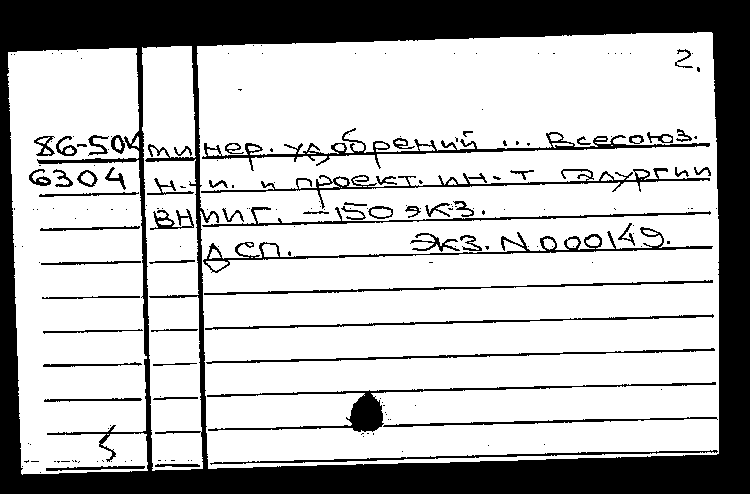 2.
86-50к минер. удобрений ... Всесоюз.
6304 н.-и. и проект. ин-т галургии
ВНИИГ. - 150 экз.
ДСП. Экз. N 000149.